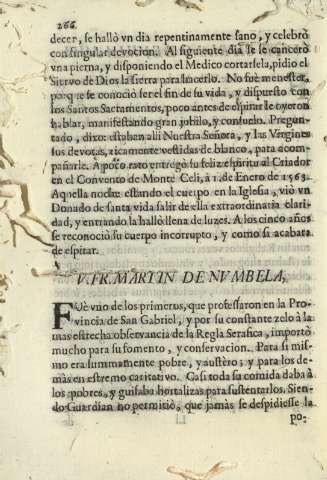 266.
decer, se hallò vn dia repentinamente sano, y celebrò
con singular devocion. Al siguiente dia se le cancerò
vna pierna, y disponiendo el Medico cortarsela, pidio el
Siervo de Dios la sierra para hacerlo. No fue menester,
porque se conociò ser el fin de su vida, y dispuesto con
los Santos Sacramentos, poco antes de espirar le oyeron
hablar, manifestando gran jobilo, y consuelo. Pregun-
tado, dixo: estaban alli Nuestra Señora, y las Virgines
sus devotas, ricamente vestidas de blanco, para acom-
pañarle. A poco rato entregò su feliz espiritu al Criador
en el Convento de Monte Celi, à 1. de Enero de 1563.
Aquella noche estando el cuerpo en la Iglesia, viò vn
Donado de santa vida salir de ella extraordinaria clari-
dad, y entrando la hallò llena de luzes. A los cinco años
se reconociò su cuerpo incorrupto, y como si acabara
de espirar.
V. FR. MARTIN DE NVMBELA,
FUè vno de los primeros, que professaron en la Pro-
vincia de San Gabriel, y por su constante zelo à la
mas estrecha observancia de la Regla Serafica, importò
mucho para su fomento, y conservacion. Para si mis-
mo era summamente pobre, y austero; y para los de-
màs en estremo caritativo. Casi toda su comida daba à
los pobres, y guisaba hortalizas para sustentarlos. Sien-
do Guardian no permitiò, que jamàs se despidiesse la
po-